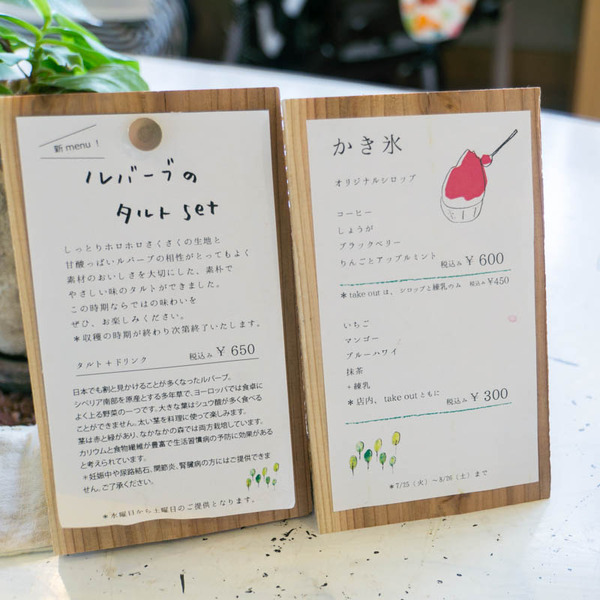 新menu！
ルバーブの
タルトset
しっとりホロホロさくさくの生地と
甘酸っぱいルバーブの相性がとってもよく
素材のおいしさを大切にした、素朴で
やさしい味のタルトができました。
この時期ならではの味わを
ぜひ、お楽しみください。
＊収穫の時期が終わり次第終了いたします。
タルト＋ドリンク 税込み ¥ 650
日本でも割と見かけることが多くなったルバーブ。
シベリア南部を原産とする多年草で、ヨーロッパでは食卓に
よく上る野菜の一つです。大きな葉はシュウ酸が多く食べる
ことができません。太い茎を料理に使って楽しみます。
茎は赤と緑があり、なかなかの森では両方栽培しています。
カリウムと食物繊維が豊富で生活習慣病の予防に効果がある
と考えられています。
＊妊娠中や尿路結石、関節炎、腎臓病の方にはご提供できま
せん。ご了承ください。
＊水曜日から土曜日のご提供となります。
かき氷
オリジナルシロップ
コーヒー
しょうが
ブラックベリー
りんごとアップルミント 税込み ¥ 600
＊take out は、シロップと練乳のみ 税込み ¥450
いちご
マンゴー
ブルーハワイ
抹茶
＋練乳
＊店内、take out ともに 税込み ¥ 300
＊7/15（火）〜8/26（土）まで